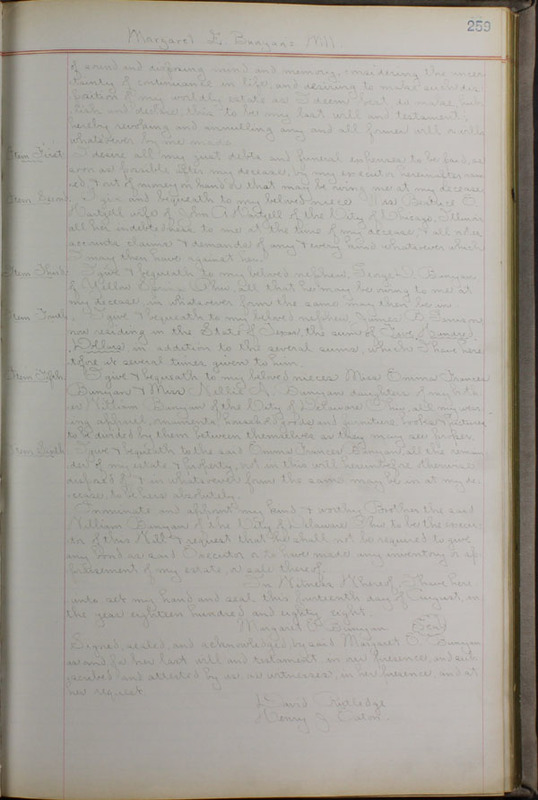 259
Margaret E. Bunyan's Will.
of sound and disposing mind and memory, considering the uncer-
tainty of continuance in life, and desiring to make such dis-
position of my worldly estate as I deem best do make, pub-
lish and declare this to be my last will and testament;
hereby revoking and annulling any and all former will or wills
whatsoever by me made.
Item First. I desire all my just debts and funeral expenses to be paid, as
soon as possible after my decease, by my executor hereinafter nam-
ed, & out of money on hand or that may be owing me at my decease.
Item Second. I give and bequeath to my beloved niece Mrs.
wife of John A. Hartzell of the City of Chicago, Illinois
all her indebtedness to me at the time of my decease, & all other
accounts claims & demands of any & every kind whatsoever which
I may then have against her.
Item Third. I give & bequeath to my beloved nephew, George D. Bunyan
of Yellow Springs Ohio, all that he may be owing to me at
my decease in whatsoever form the same may then be in.
Item Fourth. I give & bequeath to my beloved nephew James B.
now residing in the State of Texas the sum of Five Hundred
Dollars in addition to the several sums, which I have here-
tofore at several times given to him.
Item Fifth. I give & bequeath to my beloved nieces Miss Emma Frances
Bunyan & Miss Nellie A. Bunyan daughters of my broth-
er William Bunyan of the City of Delaware Ohio, all my wear-
ing apparel, ornaments, household goods and furniture, books & pictures
to be divided by them between themselves as they may see proper.
Item Sixth. I give & bequeath to the said Emma Frances Bunyan all the remain-
der of my estate & property, not in this will heretofore otherwise
disposed of & in whatsoever form the same may be in at my de-
cease to be hers absolutely.
I nominate and appoint my kind & worthy Brother the said
William Bunyan of the City of Delaware Ohio to be the execu-
tor of this Will & request that he shall not be required to give
any bond as said Executor or to have made any inventory or ap-
praisement of my estate, or sale thereof.
In Witness Whereof, I have here-
unto set my hand and seal, this day of August, in
the year eighteen hundred and eighty eight.
Margaret E. Bunyan Seal
Signed, sealed, and acknowledged, by said Margaret E. Bunyan
as and for her last will and testament in our presence, and sub-
scribed and attested by us as witnesses, in her presence, and at
her request.
David Rutledge
Henry J.